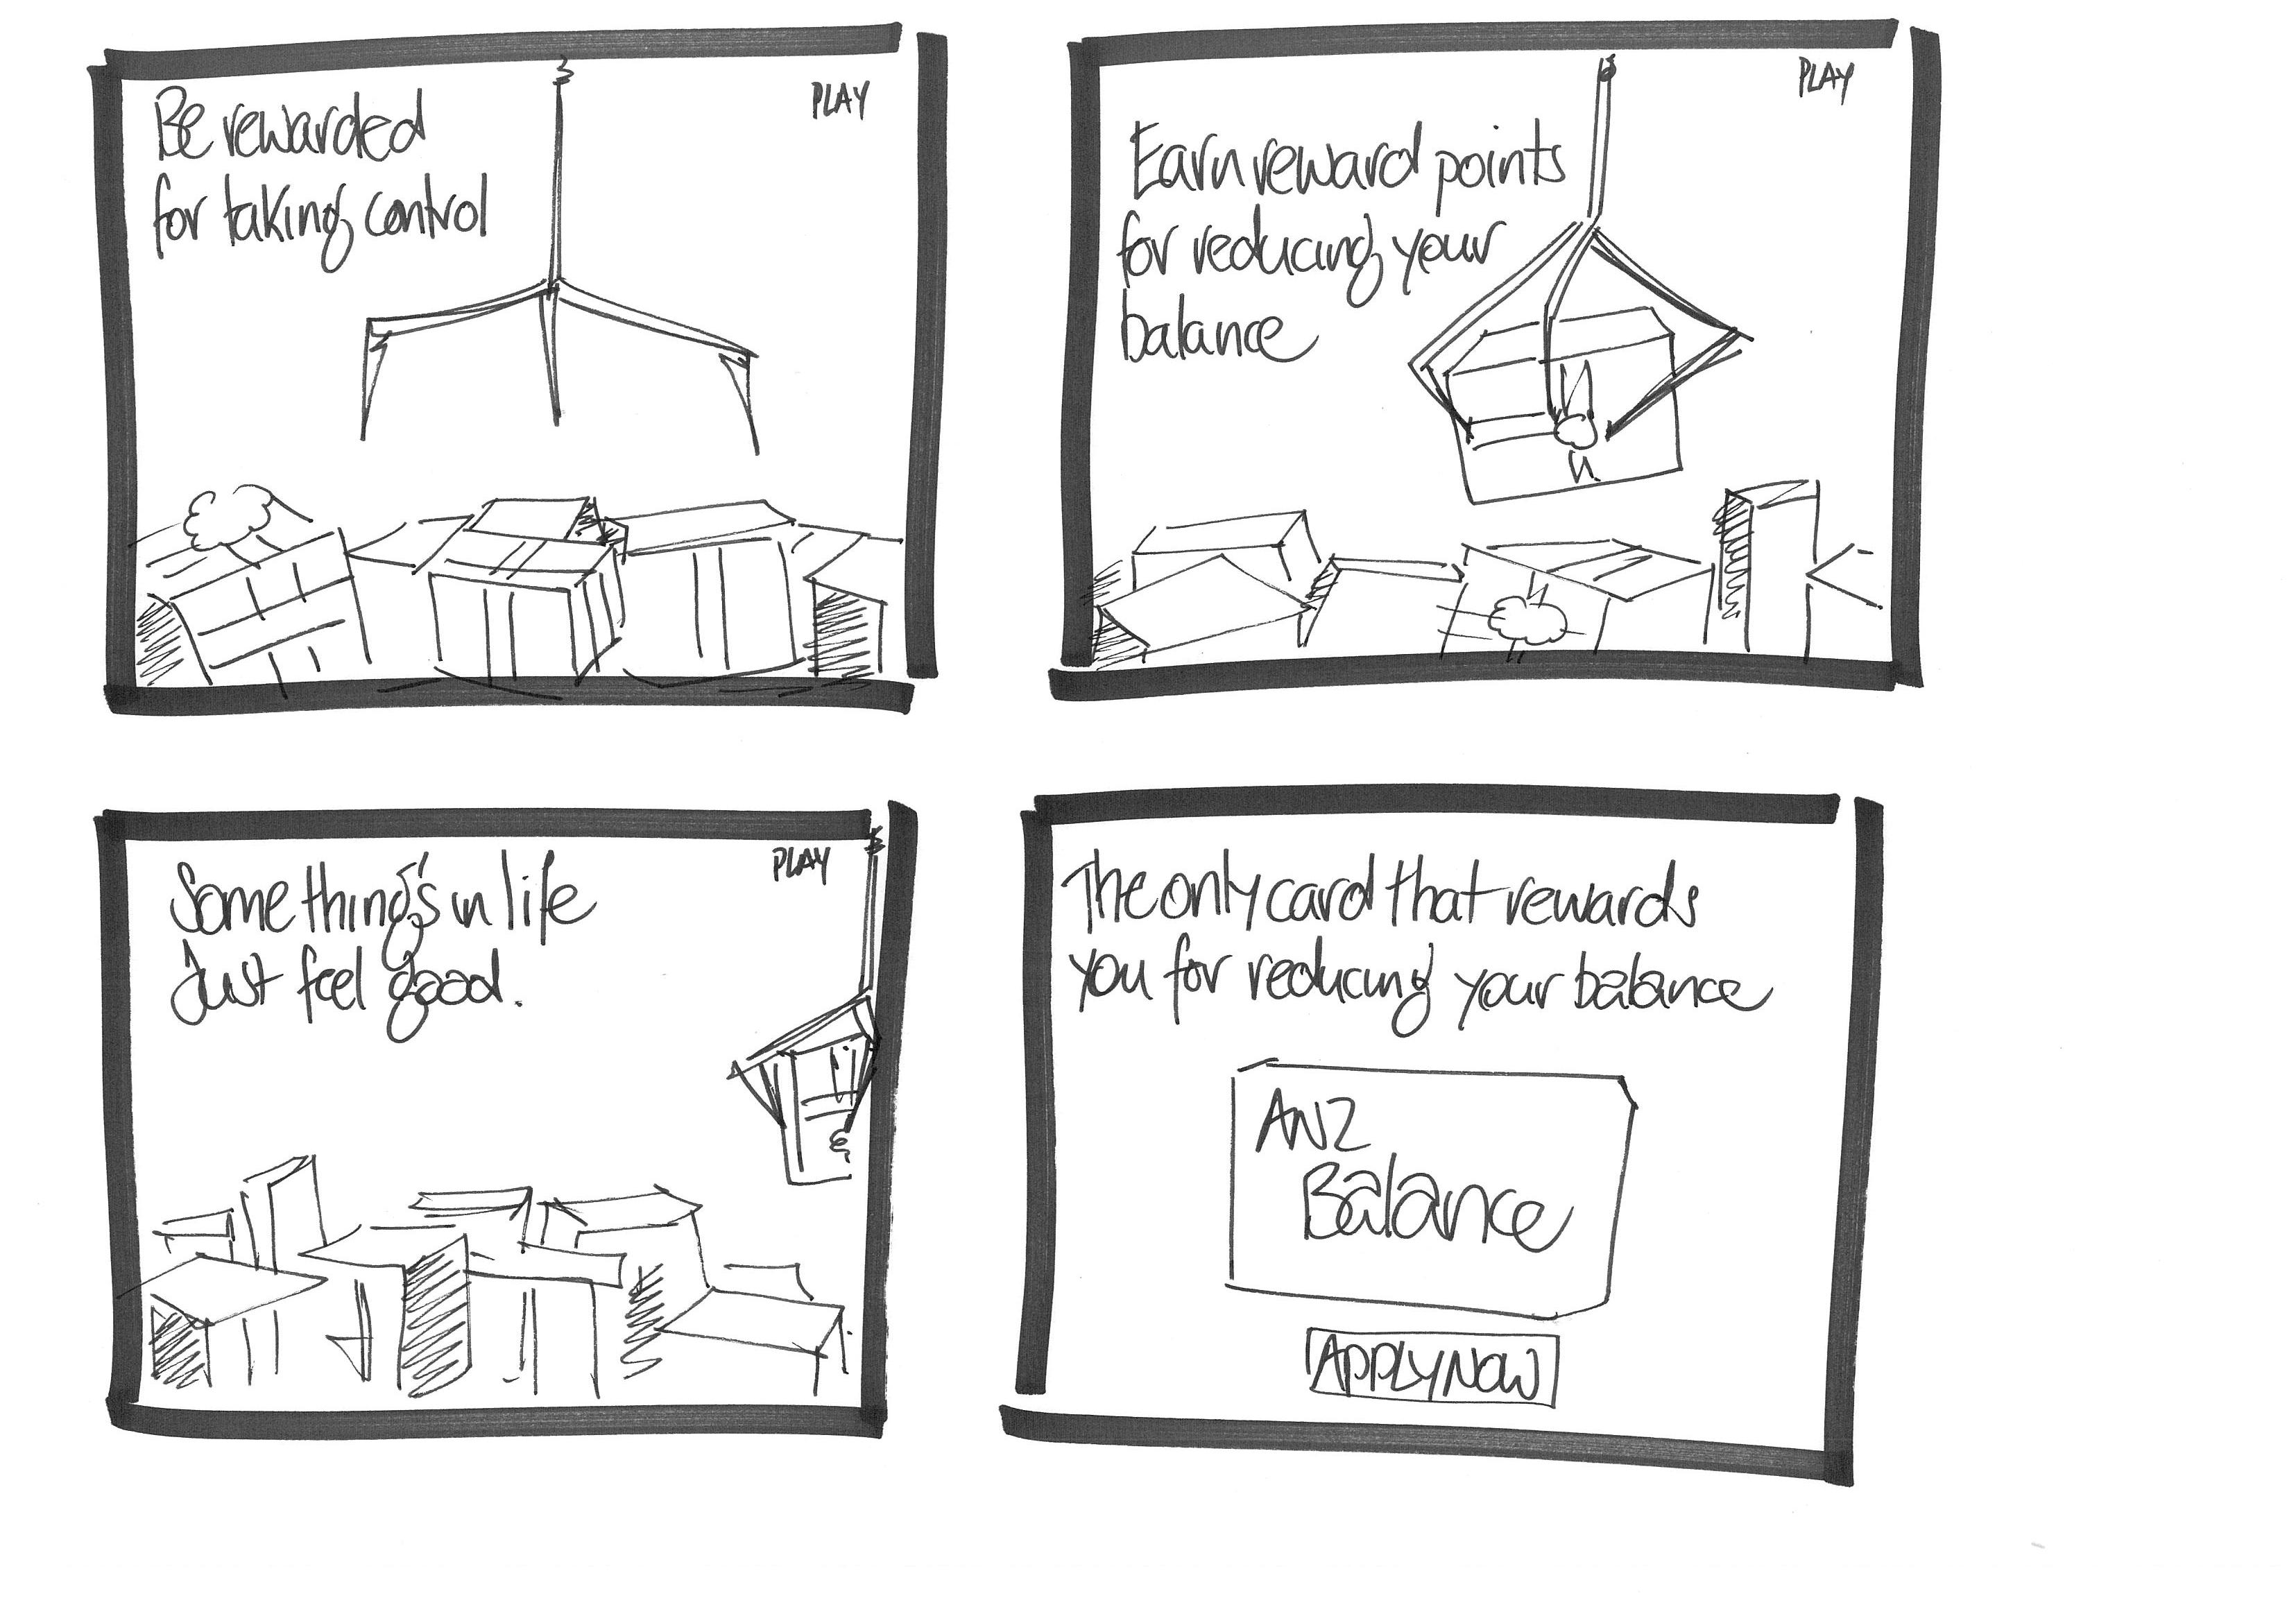 Be rewarded
for taking control
PLAY
Earn reward points
for reducing your
balance
PLAY
Some thing's in life
Just feel good.
PLAY
The only card that rewards
you for reducing your balance
ANZ
Balance
APPLY NOW